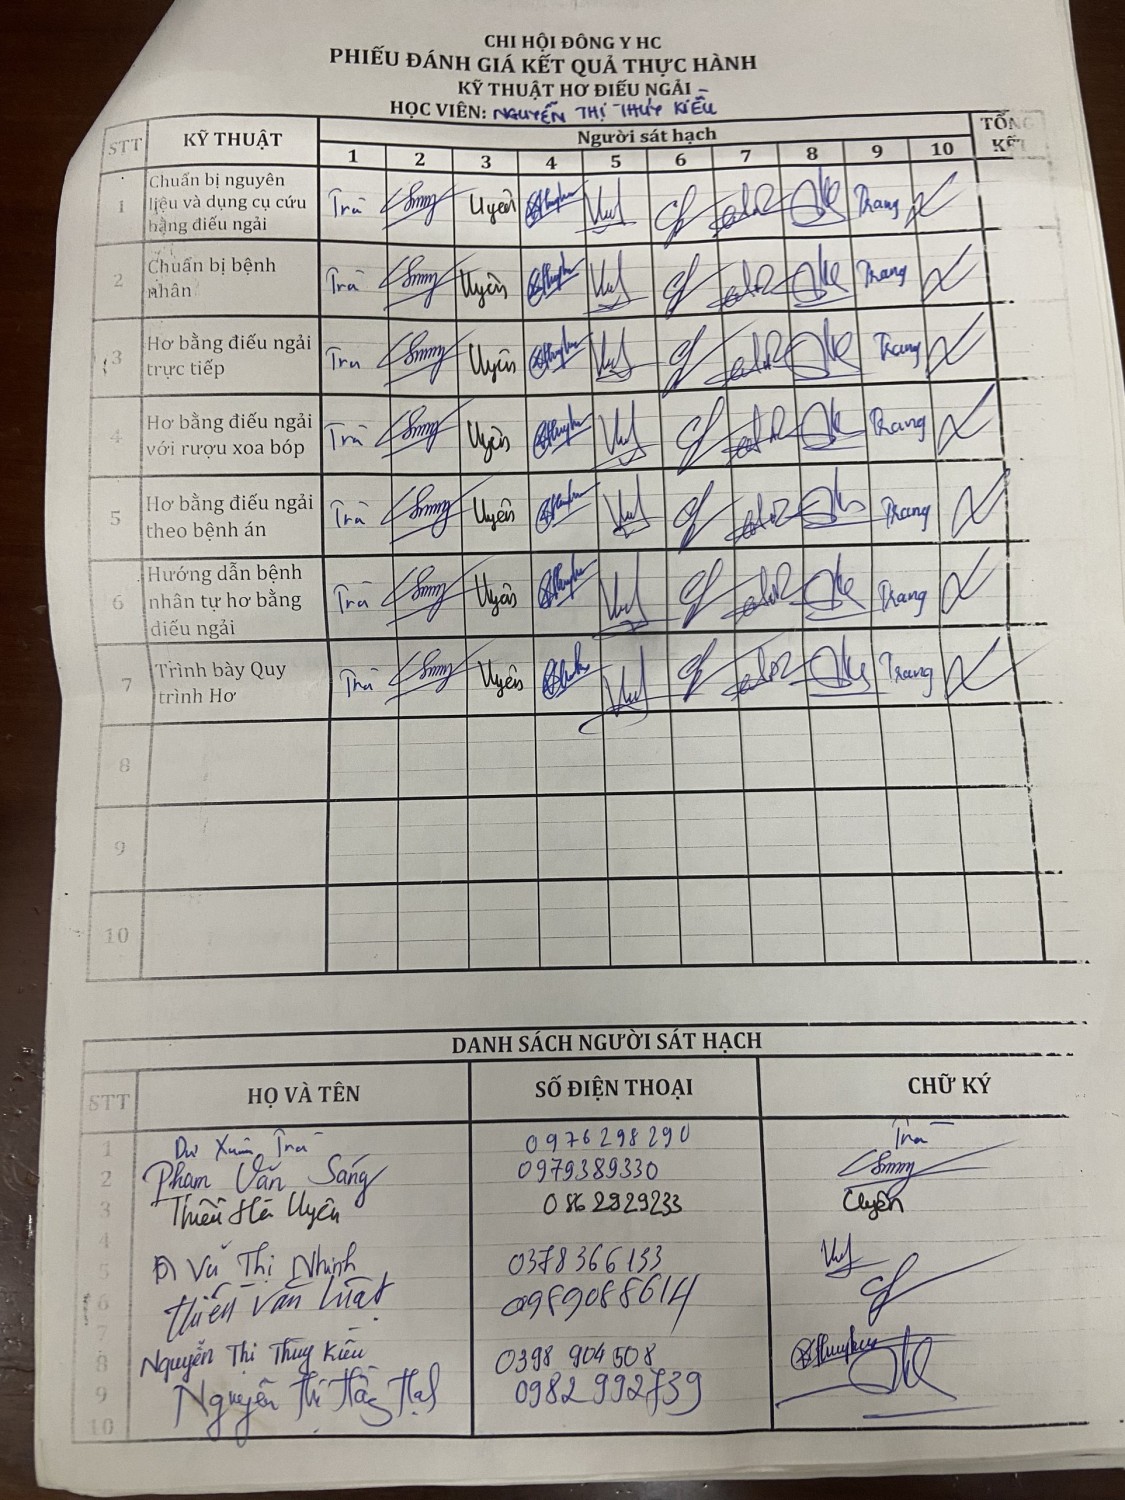 CHI HỘI ĐÔNG Y HC
PHIẾU ĐÁNH GIÁ KẾT QUẢ THỰC HÀNH
KỸ THUẬT HƠ ĐIẾU NGẢI
HỌC VIÊN: NGUYỄN THỊ THUÝ KIỀU
STT KỸ THUẬT Người sát hạch TỔNG KẾT
1 2 3 4 5 6 7 8 9 10
1 Chuẩn bị nguyên liệu và dụng cụ cứu bằng điếu ngải Trà Uyên Trang
2 Chuẩn bị bệnh nhân Trà Uyên Trang
3 Hơ bằng điếu ngải trực tiếp Trà Uyên Trang
4 Hơ bằng điếu ngải với rượu xoa bóp Trà Uyên Trang
5 Hơ bằng điếu ngải theo bệnh án Trà Uyên Trang
6 Hướng dẫn bệnh nhân tự hơ bằng điếu ngải Trà Uyên Trang
7 Trình bày Quy trình Hơ Trà Uyên Trang
8
9
10
DANH SÁCH NGƯỜI SÁT HẠCH
STT HỌ VÀ TÊN SỐ ĐIỆN THOẠI CHỮ KÝ
1 Dư Xuân Trà 0976298290 Trà
2 Phạm Văn Sáng 0979389330
3 Thiều Hà Uyên 0862929233 Uyên
4
5 Vũ Thị Nhinh 0378366133
6 Thiều Văn Luật 0989088614
7
8 Nguyễn Thị Thuý Kiều 0398 904 508
9 Nguyễn Thị Hồng 0982 992739
10